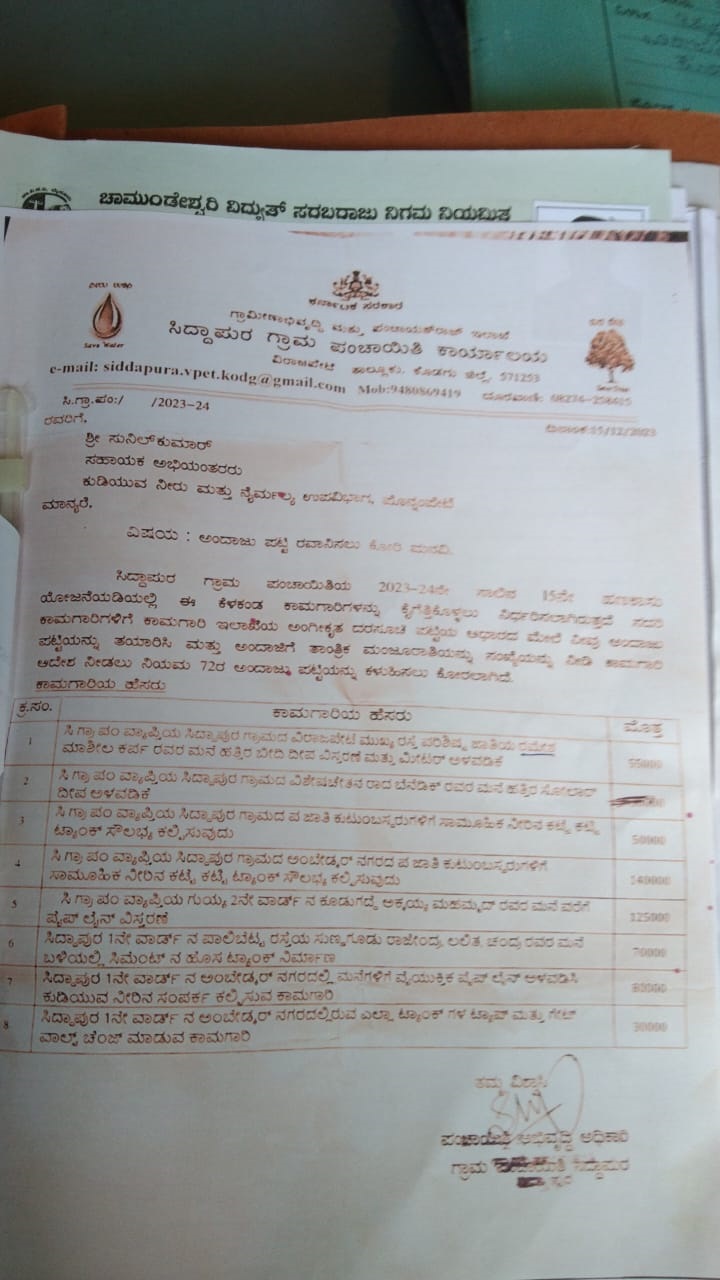 ಚಾಮುಂಡೇಶ್ವರಿ ವಿದ್ಯುತ್ ಸರಬರಾಜು ನಿಗಮ ನಿಯಮಿತ
Save Water
ಕರ್ನಾಟಕ ಸರಕಾರ
ಗ್ರಾಮೀಣಾಭಿವೃದ್ಧಿ ಮತ್ತು ಪಂಚಾಯತ್‌ರಾಜ್ ಇಲಾಖೆ
ಸಿದ್ದಾಪುರ ಗ್ರಾಮ ಪಂಚಾಯಿತಿ ಕಾರ್ಯಾಲಯ
ವಿರಾಜಪೇಟೆ ತಾಲ್ಲೂಕು. ಕೊಡಗು ಜಿಲ್ಲೆ. 571253
e-mail: siddapura.vpet.kodg@gmail.com Mob:9480869419 ದೂರವಾಣಿ:
ಸಿ.ಗ್ರಾ.ಪಂ:/ /2023-24
ದಿನಾಂಕ:15/12/2023
ರವರಿಗೆ,
ಶ್ರೀ ಸುನಿಲ್‌ಕುಮಾರ್
ಸಹಾಯಕ ಅಭಿಯಂತರರು
ಕುಡಿಯುವ ನೀರು ಮತ್ತು ನೈರ್ಮಲ್ಯ ಉಪವಿಭಾಗ, ಪೊನ್ನಂಪೇಟೆ
ಮಾನ್ಯರೆ,
ವಿಷಯ : ಅಂದಾಜು ಪಟ್ಟಿ ರವಾನಿಸಲು ಕೋರಿ ಮನವಿ.
ಸಿದ್ದಾಪುರ ಗ್ರಾಮ ಪಂಚಾಯಿತಿಯ 2023-24ನೇ ಸಾಲಿನ 15ನೇ ಹಣಕಾಸು
ಯೋಜನೆಯಡಿಯಲ್ಲಿ ಈ ಕೆಳಕಂಡ ಕಾಮಗಾರಿಗಳನ್ನು ಕೈಗೆತ್ತಿಕೊಳ್ಳಲು ನಿರ್ಧರಿಸಲಾಗಿರುತ್ತದೆ ಸದರಿ
ಕಾಮಗಾರಿಗಳಿಗೆ ಕಾಮಗಾರಿ ಇಲಾಖೆಯ ಅಂಗೀಕೃತ ದರಸೂಚಿ ಪಟ್ಟಿಯ ಆಧಾರದ ಮೇಲೆ ನೀವು ಅಂದಾಜು
ಪಟ್ಟಿಯನ್ನು ತಯಾರಿಸಿ ಮತ್ತು ಅಂದಾಜಿಗೆ ತಾಂತ್ರಿಕ ಮಂಜೂರಾತಿಯನ್ನು ಸಂಖ್ಯೆಯನ್ನು ನೀಡಿ ಕಾಮಗಾರಿ
ಆದೇಶ ನೀಡಲು ನಿಯಮ 72ರ ಅಂದಾಜು ಪಟ್ಟಿಯನ್ನು ಕಳುಹಿಸಲು ಕೋರಲಾಗಿದೆ.
ಕಾಮಗಾರಿಯ ಹೆಸರು
ಕ್ರ.ಸಂ. ಕಾಮಗಾರಿಯ ಹೆಸರು ಮೊತ್ತ
1 ಸಿ ಗ್ರಾ ಪಂ ವ್ಯಾಪ್ತಿಯ ಸಿದ್ದಾಪುರ ಗ್ರಾಮದ ವಿರಾಜಪೇಟೆ ಮುಖ್ಯ ರಸ್ತೆ ಪರಿಶಿಷ್ಟ ಜಾತಿಯ ರಮೇಶ
ಮಾಶೀಲ ಕರ್ಪ ರವರ ಮನೆ ಹತ್ತಿರ ಬೀದಿ ದೀಪ ವಿಸ್ತರಣೆ ಮತ್ತು ಮೀಟರ್ ಅಳವಡಿಕೆ 55000
2 ಸಿ ಗ್ರಾ ಪಂ ವ್ಯಾಪ್ತಿಯ ಸಿದ್ದಾಪುರ ಗ್ರಾಮದ ವಿಶೇಷಚೇತನ ರಾದ ಬೆನೆಡಿಕ್ ರವರ ಮನೆ ಹತ್ತಿರ ಸೋಲಾರ್
ದೀಪ ಅಳವಡಿಕೆ
3 ಸಿ ಗ್ರಾ ಪಂ ವ್ಯಾಪ್ತಿಯ ಸಿದ್ದಾಪುರ ಗ್ರಾಮದ ಪ ಜಾತಿ ಕುಟುಂಬಸ್ಥರುಗಳಿಗೆ ಸಾಮೂಹಿಕ ನೀರಿನ ಕಟ್ಟೆ ಕಟ್ಟಿ
ಟ್ಯಾಂಕ್ ಸೌಲಭ್ಯ ಕಲ್ಪಿಸುವುದು 50000
4 ಸಿ ಗ್ರಾ ಪಂ ವ್ಯಾಪ್ತಿಯ ಸಿದ್ದಾಪುರ ಗ್ರಾಮದ ಅಂಬೇಡ್ಕರ್ ನಗರದ ಪ ಜಾತಿ ಕುಟುಂಬಸ್ಥರುಗಳಿಗೆ
ಸಾಮೂಹಿಕ ನೀರಿನ ಕಟ್ಟೆ ಕಟ್ಟಿ ಟ್ಯಾಂಕ್ ಸೌಲಭ್ಯ ಕಲ್ಪಿಸುವುದು 140000
5 ಸಿ ಗ್ರಾ ಪಂ ವ್ಯಾಪ್ತಿಯ ಗುಯ್ಯ 2ನೇ ವಾರ್ಡ್ ನ ಕೂಡುಗದ್ದೆ ಅಕ್ಕಯ್ಯ ಮಹಮ್ಮದ್ ರವರ ಮನೆ ವರೆಗೆ
ಪೈಪ್ ಲೈನ್ ವಿಸ್ತರಣೆ 125000
6 ಸಿದ್ದಾಪುರ 1ನೇ ವಾರ್ಡ್ ನ ಪಾಲಿಬೆಟ್ಟ ರಸ್ತೆಯ ಸುಣ್ಣಗೂಡು ರಾಜೇಂದ್ರ, ಲಲಿತ, ಚಂದ್ರ ರವರ ಮನೆ
ಬಳಿಯಲ್ಲಿ ಸಿಮೆಂಟ್ ನ ಹೊಸ ಟ್ಯಾಂಕ್ ನಿರ್ಮಾಣ 70000
7 ಸಿದ್ದಾಪುರ 1ನೇ ವಾರ್ಡ್ ನ ಅಂಬೇಡ್ಕರ್ ನಗರದಲ್ಲಿ ಮನೆಗಳಿಗೆ ವೈಯುಕ್ತಿಕ ಪೈಪ್ ಲೈನ್ ಅಳವಡಿಸಿ
ಕುಡಿಯುವ ನೀರಿನ ಸಂಪರ್ಕ ಕಲ್ಪಿಸುವ ಕಾಮಗಾರಿ 80000
8 ಸಿದ್ದಾಪುರ 1ನೇ ವಾರ್ಡ್ ನ ಅಂಬೇಡ್ಕರ್ ನಗರದಲ್ಲಿರುವ ಎಲ್ಲಾ ಟ್ಯಾಂಕ್ ಗಳ ಟ್ಯಾಪ್ ಮತ್ತು ಗೇಟ್
ವಾಲ್ವ್ ಚೆಂಜ್ ಮಾಡುವ ಕಾಮಗಾರಿ 30000
ತಮ್ಮ ವಿಶ್ವಾಸಿ
ಪಂಚಾಯಿತಿ ಅಭಿವೃದ್ಧಿ ಅಧಿಕಾರಿ
ಗ್ರಾಮ ಪಂಚಾಯಿತಿ ಸಿದ್ದಾಪುರ